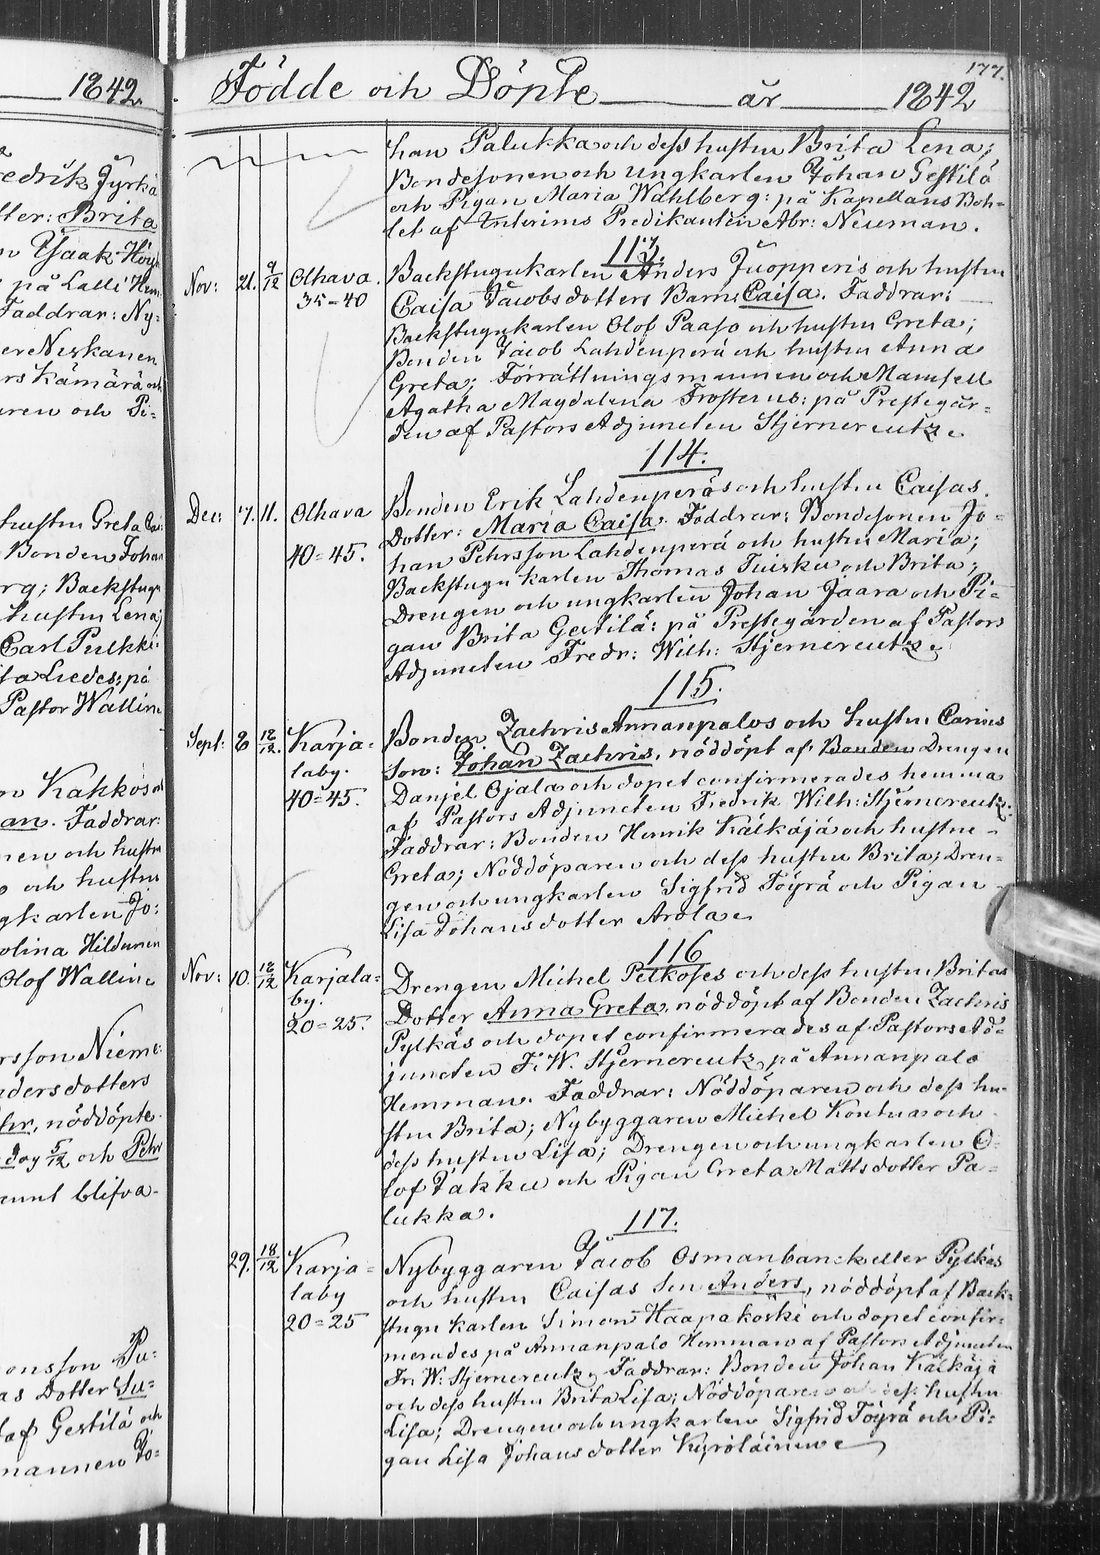 1842.
Födde och Döpte år 1842
177.
edrik Jyrkä
tter: Brita
Isaak
på Lalli
Faddrar: Ny-
er Neskanen
rs Kämärä och
aren och Pi-
hustru Greta
Bonden Johan
rg; Backstugu
hustru Lena;
Carl Pulkki
ta Liedes: på
Pastor Wallin
n Kakkos
an. Faddrar:
nen och hustru
o och hustru
gkarlen Jo:
olina Hildunen
Olof Wallin
rsson Nieme
ndersdotters
hr, nöddöpte
dag 5/12 och Pehr
amt blifva
onsson Pu-
as Dotter Su-
af Gestilä och
mannen Jo-
han Palukka och dess hustru Brita Lena;
Bondesonen och ungkarlen Johan Gestilä
och Pigan Maria Wahlberg: på Kapellans Bohl-
let af Interims Predikanten Abr: Neuman.
113.
Nov: 21. 9/12 Olhava. 35=40
Backstugukarlen Anders Juopperis och hustru
Caisa Jacobsdotters Barn: Caisa. Faddrar:
Backstugukarlen Olof Paaso och hustru Greta;
Bonden Jacob Lahdenperä och hustru Anna
Greta; Förrättningsmannen och Mamsell
Agatha Magdalena Frosterus: på Prestegår-
den af Pastors Adjuncten Stjerncreutz.
114.
Dec: 7. 11. Olhava 40=45.
Bonden Erik Lahdenperäs och hustru Caisas
Dotter: Maria Caisa. Faddrar: Bondesonen Jo-
han Pehrsson Lahdenperä och hustru Maria;
Backstugukarlen Thomas Tuisku och Brita;
Drengen och ungkarlen Johan Jaara och Pi-
gan Brita Gestilä: på Prestegården af Pastors
Adjuncten Fredr: Wilh: Stjerncreutz.
115.
Sept: 8 12/12. Karja-laby. 40=45.
Bonden Zachris Annanpalos och hustru Carins
Son: Johan Zachris, nöddöpt af Bonden Drengen
Danjel Ojala och dopet confirmerades hemma
af Pastors Adjuncten Fredrik Wilh: Stjerncreutz.
Faddrar: Bonden Henrik Kälkäjä och hustru
Greta; Nöddöparen och dess hustru Brita; Dren-
gen och ungkarlen Sigfrid Töyrä och Pigan
Lisa Johansdotter Arola.
116
Nov: 10. 12/12 Karjala-by. 20=25.
Drengen Michel Pelkoses och dess hustru Britas
Dotter Anna Greta, nöddöpt af Bonden Zachris
Pylkäs och dopet confirmerades af Pastors Ad-
juncten F. W. Stjerncreutz, på Annanpalo
Hemman. Faddrar: Nöddöparen och dess hu-
stru Brita; Nybyggaren Michel Kontua och
dess hustru Lisa; Drengen och ungkarlen O-
lof Jakku och Pigan Greta Mattsdotter Pa-
lukka.
117.
29. 18/12 Karja-laby 20=25
Nybyggaren Jacob Osmanbanck eller Pylkäs
och hustru Caisas Son Anders, nöddöpt af Back-
stugukarlen Simon Haapakoski och dopet confir-
merades på Annanpalo Hemman af Pastors Adjuncten
Fr: W. Stjerncreutz, Faddrar: Bonden Johan Kälkäjä
och dess hustru Brita Lisa; Nöddöparen och dess hustru
Lisa; Drengen och ungkarlen Sigfrid Töyrä och Pi-
gan Lisa Johansdotter Kyröläinen.